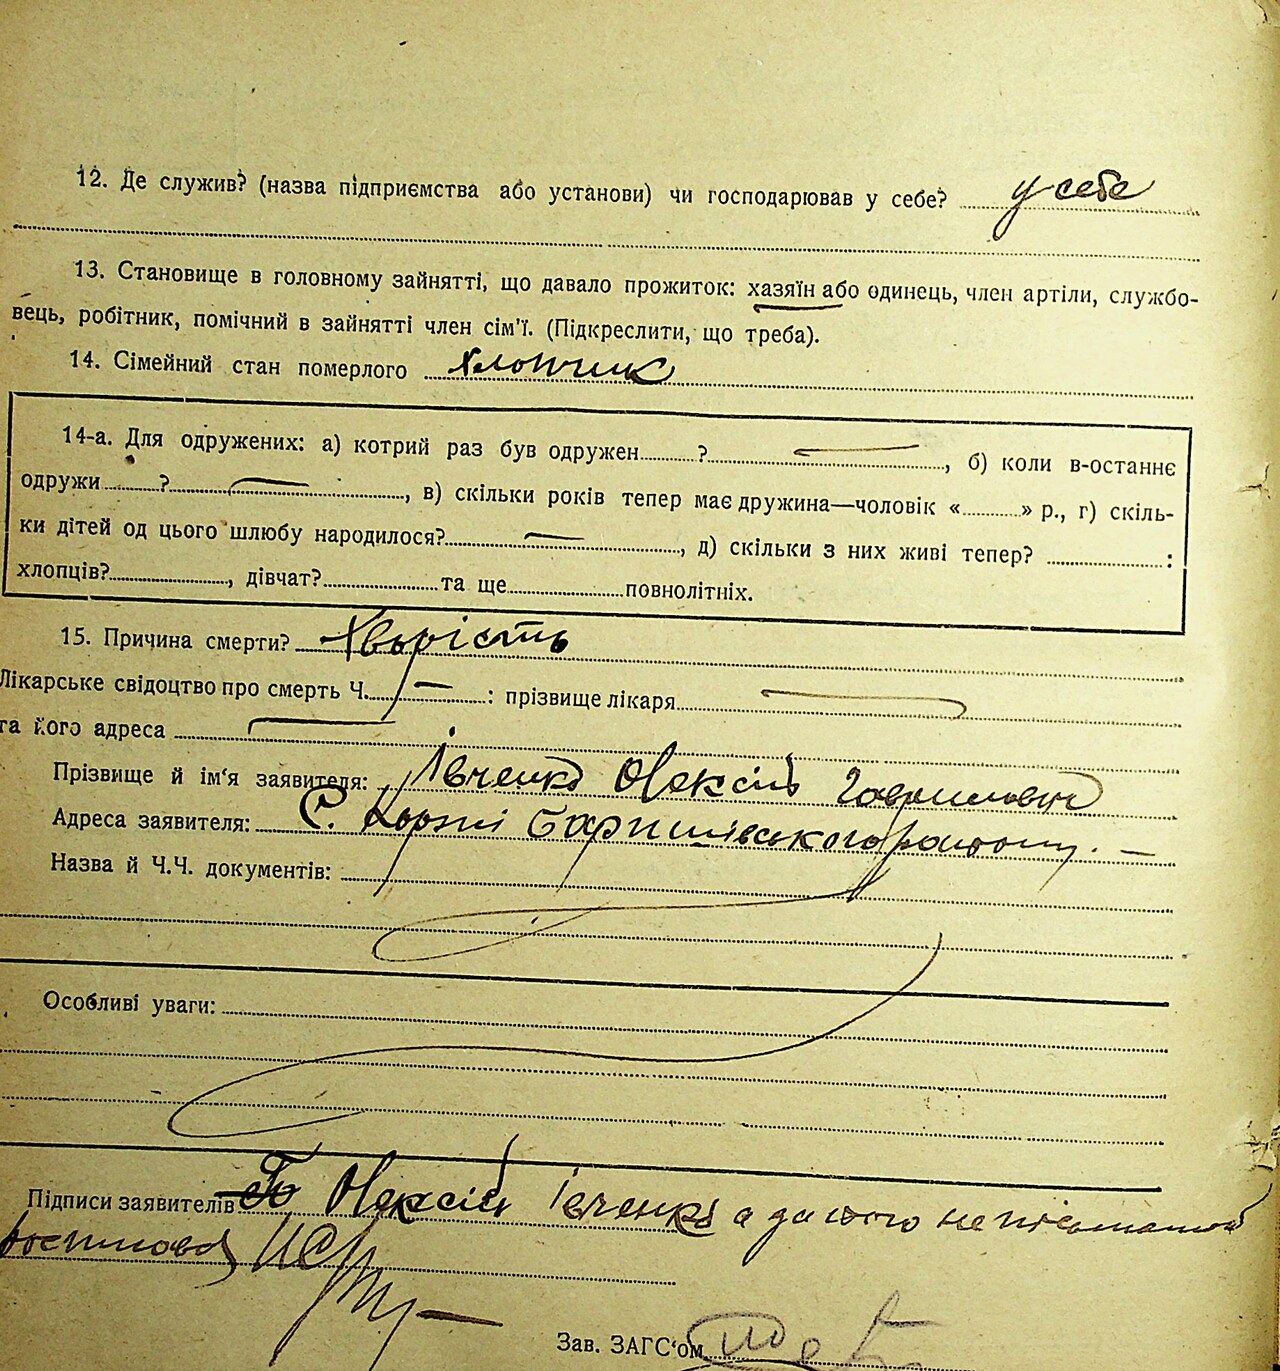 12. Де служив? (назва підприємства або установи) чи господарював у себе? у себе
13. Становище в головному зайнятті, що давало прожиток: хазяїн або одинець, член артіли, службо-
вець, робітник, помічний в зайнятті член сім'ї. (Підкреслити, що треба).
14. Сімейний стан померлого хлопчик
14-а. Для одружених: а) котрий раз був одружен........? ........, б) коли в-останнє
одружи........? ........, в) скільки років тепер має дружина—чоловік «........» р., г) скіль-
ки дітей од цього шлюбу народилося? ........, д) скільки з них живі тепер? ........:
хлопців?........, дівчат?........ та ще........ повнолітніх.
15. Причина смерти? Хворість
Лікарське свідоцтво про смерть Ч. — : прізвище лікаря
та його адреса
Прізвище й ім'я заявителя: Івченко Олексій Гаврилович
Адреса заявителя: С. Коржі Баришівського району. —
Назва й Ч.Ч. документів:
Особливі уваги:
Підписи заявителів Олексій Івченко а за його неписьменного
Зав. ЗАГС'ом